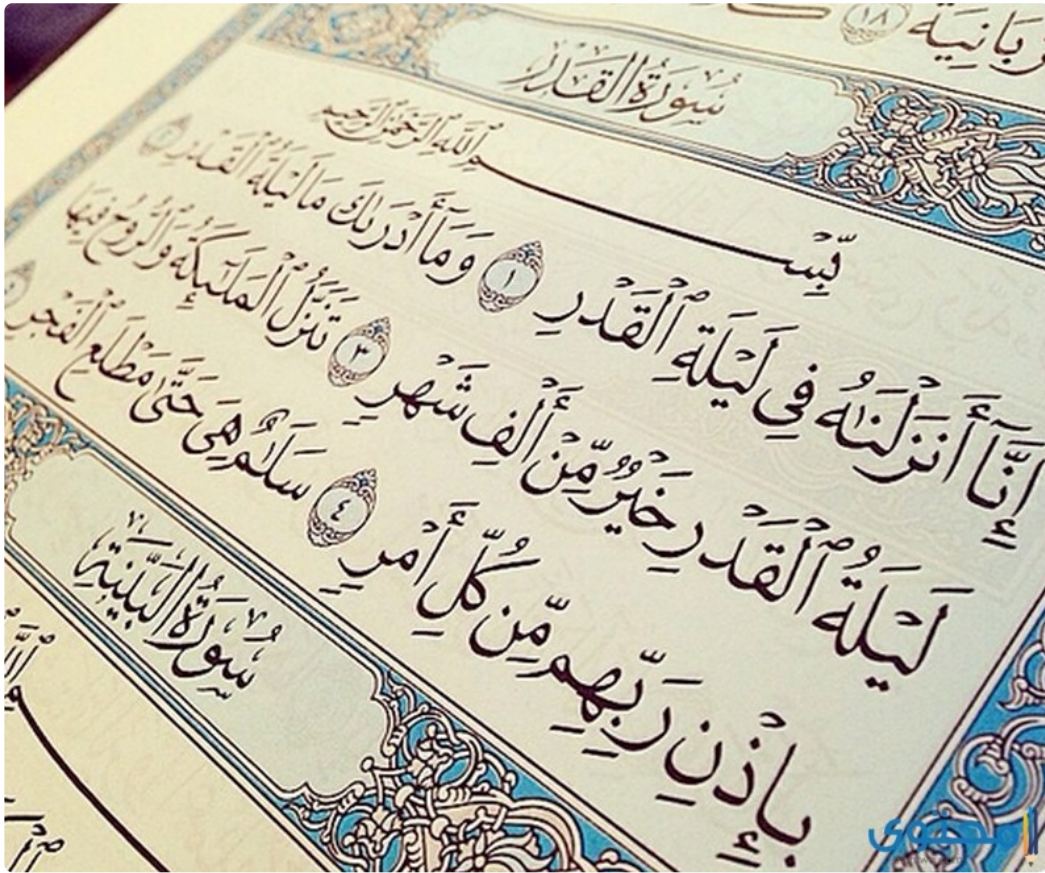 زبانية ١٨
سورة القدر
بِّسْمِ اللَّهِ الرَّحْمَٰنِ الرَّحِيمِ
إِنَّآ أَنزَلْنَٰهُ فِى لَيْلَةِ ٱلْقَدْرِ ١ وَمَآ أَدْرَىٰكَ مَا لَيْلَةُ ٱلْقَدْرِ ٢
لَيْلَةُ ٱلْقَدْرِ خَيْرٌ مِّنْ أَلْفِ شَهْرٍ ٣ تَنَزَّلُ ٱلْمَلَٰٓئِكَةُ وَٱلرُّوحُ فِيهَا
بِإِذْنِ رَبِّهِم مِّن كُلِّ أَمْرٍ ٤ سَلَٰمٌ هِىَ حَتَّىٰ مَطْلَعِ ٱلْفَجْرِ ٥
سُورَةُ البَيِّنَةِ
محتوى